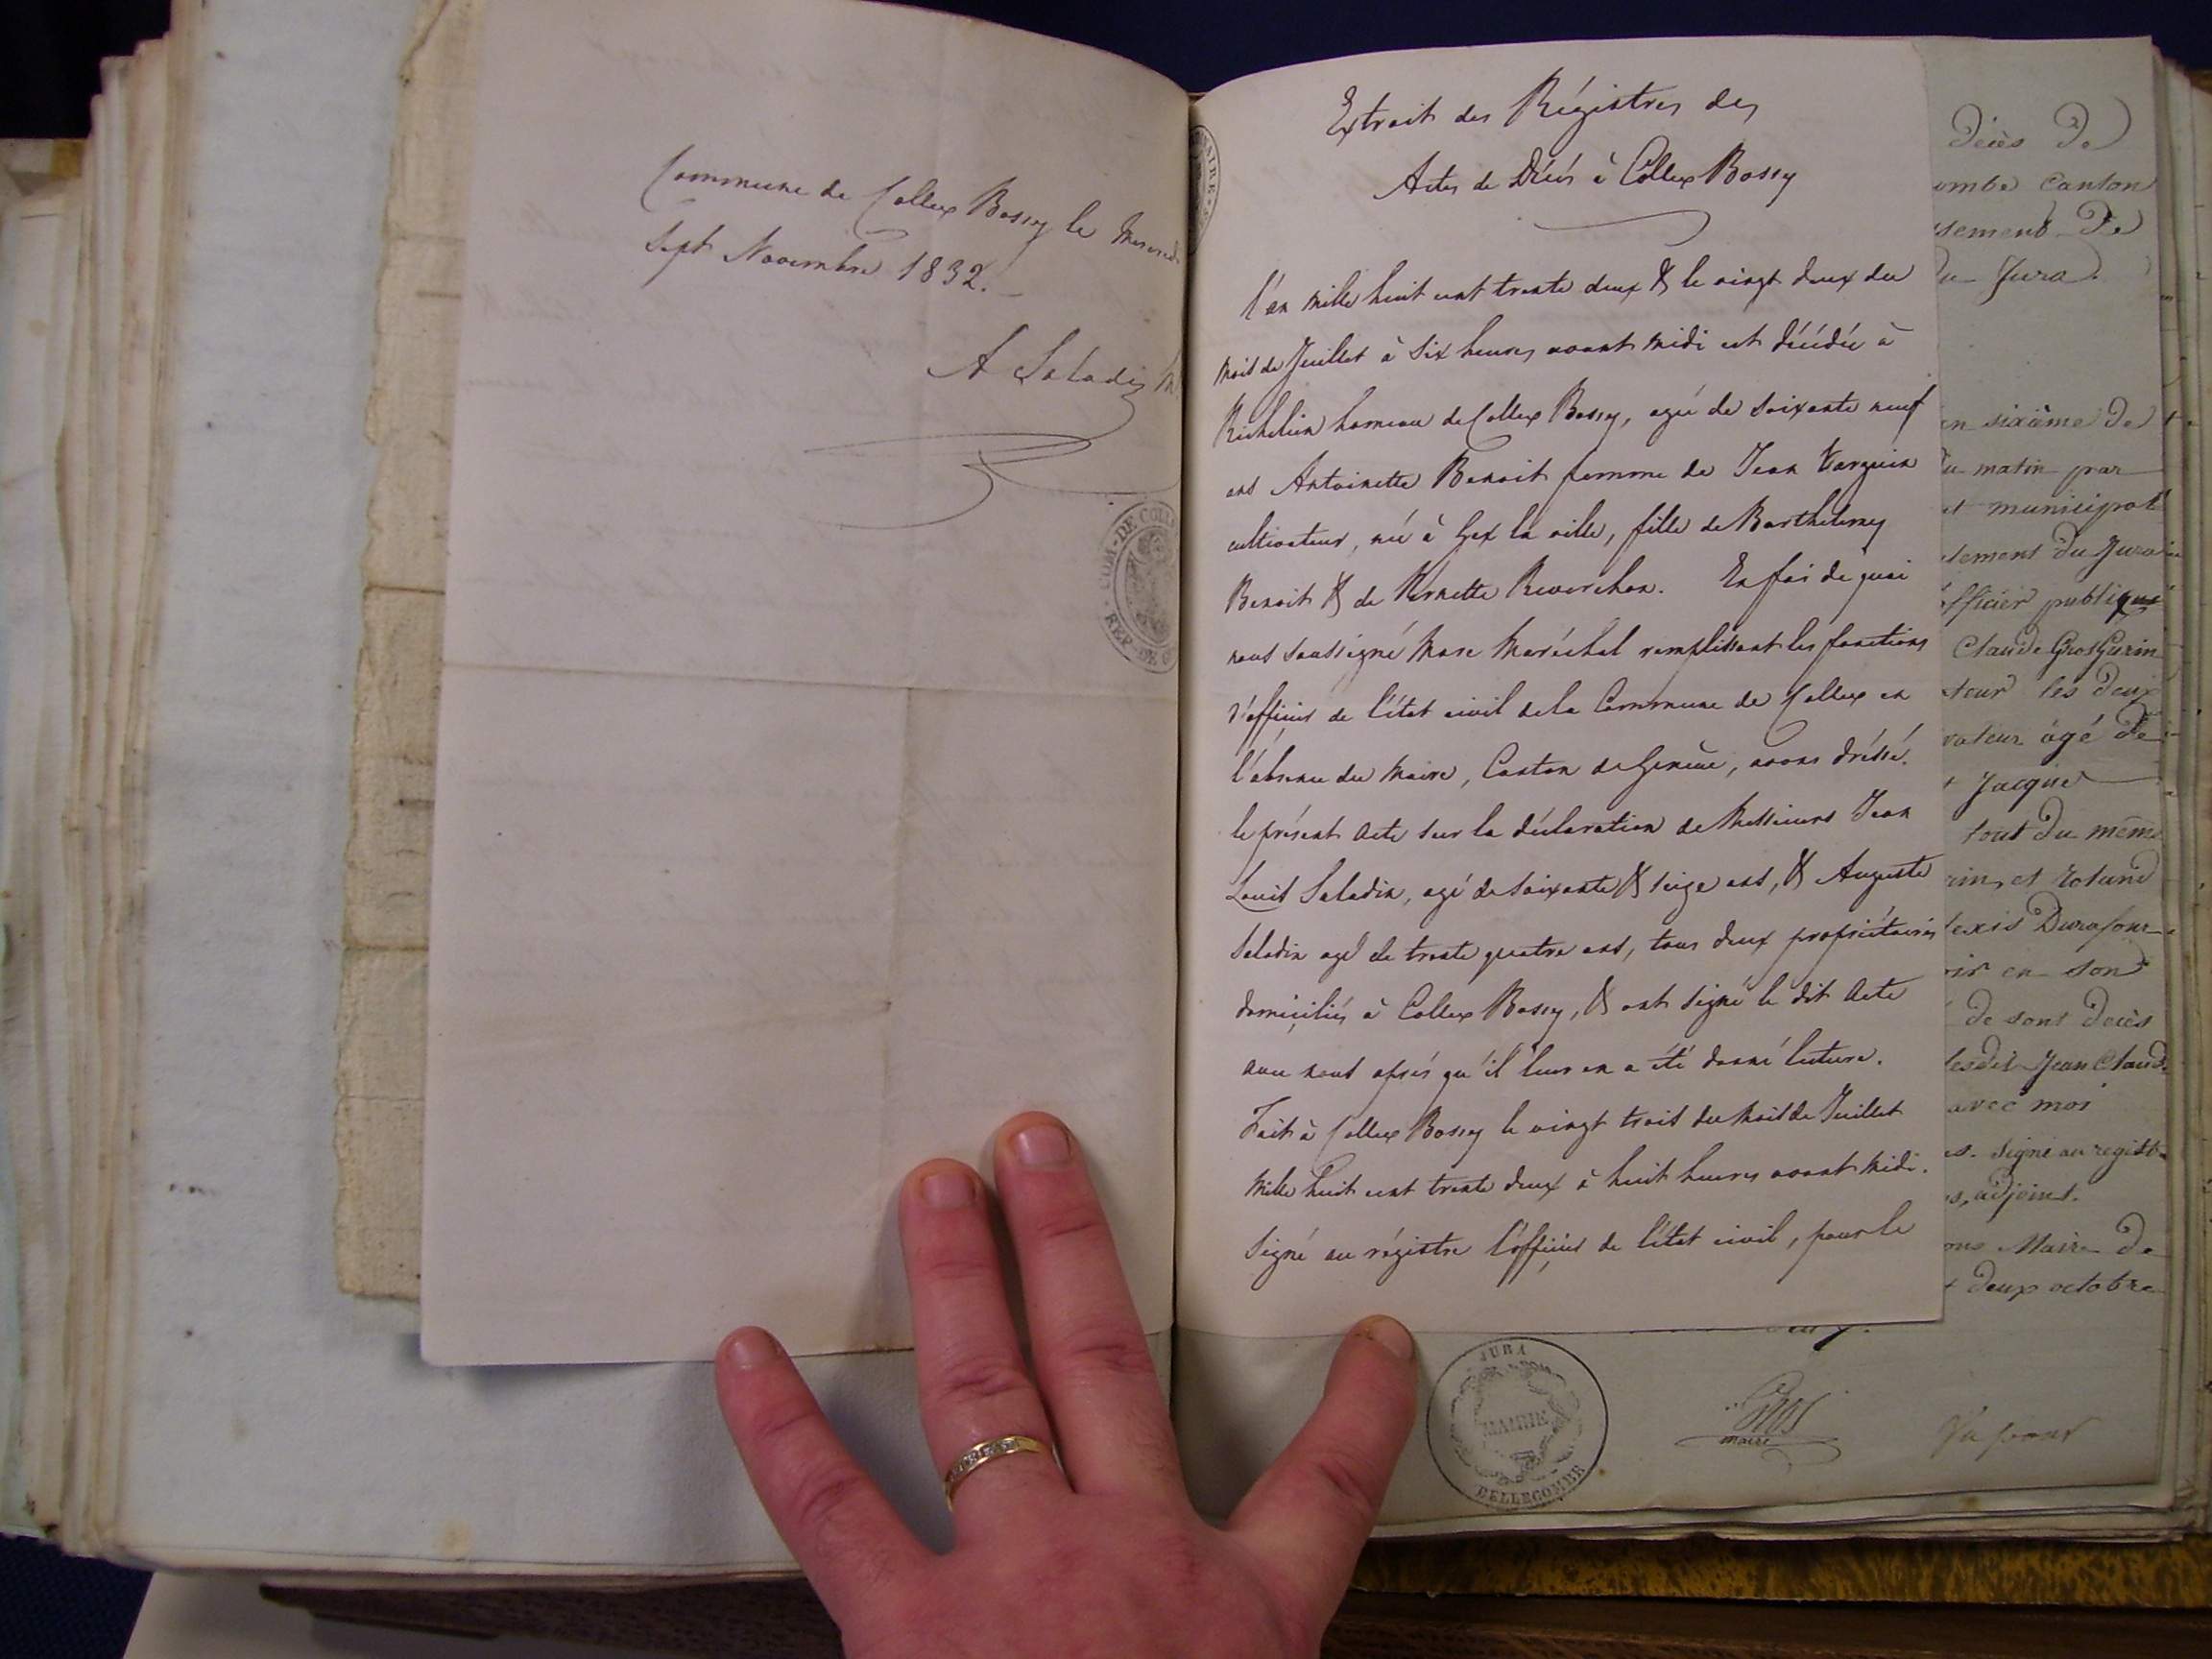 Commune de Collex Bossy le Mercredi
Sept Novembre 1832.
A Saladin
COM. DE COLL
REP. DE G
Extrait des Régistres des
Actes de Décés à Collex Bossy
l'an mille huit cent trente deux & le vingt deux du
mois de Juillet à Six heures avant midi est décédée à
Richelien hameau de Collex Bossy, agée de soixante neuf
ans Antoinette Benoit femme de Jean
cultivateur, née à Gex la ville, fille de Barthelemy
Benoit & de Pernette Reverchon. En foi de quoi
nous soussigné Marc Maréchal remplissant les fonctions
d'officier de l'état civil de la Commune de Collex en
l'absence du Maire, Canton de Genève, avons dréssé
le présent acte sur la déclaration de Messieurs Jean
Louis Saladin, agé de soixante & seize ans, & Auguste
Saladin agé de trente quatre ans, tous deux propriétaires
domiciliés à Collex Bossy, & ont signé le dit acte
avec nous aprés qu'il leur en a été donné lecture.
Fait à Collex Bossy le vingt trois du Mois de Juillet
mille huit cent trente deux à huit heures avant midi.
Signé au régistre l'officier de l'état civil, pour le
décès de
ombe Canton
sement de
du Jura.
en sixième de
du matin par
et municipal
tement du Jura
officier publique
Claude GrosGurin
teur les deux
vateur âgé de
t Jacque
tout du même
rin, et
lexis Durafour
oir en son
de sont decès
lesdit Jean Claude
avec moi
es. Signé au registre
s, adjoint.
ons Maire de
t deux octobre
JURA
MAIRIE
BELLECOMBE
Gros
maire
Vu pour